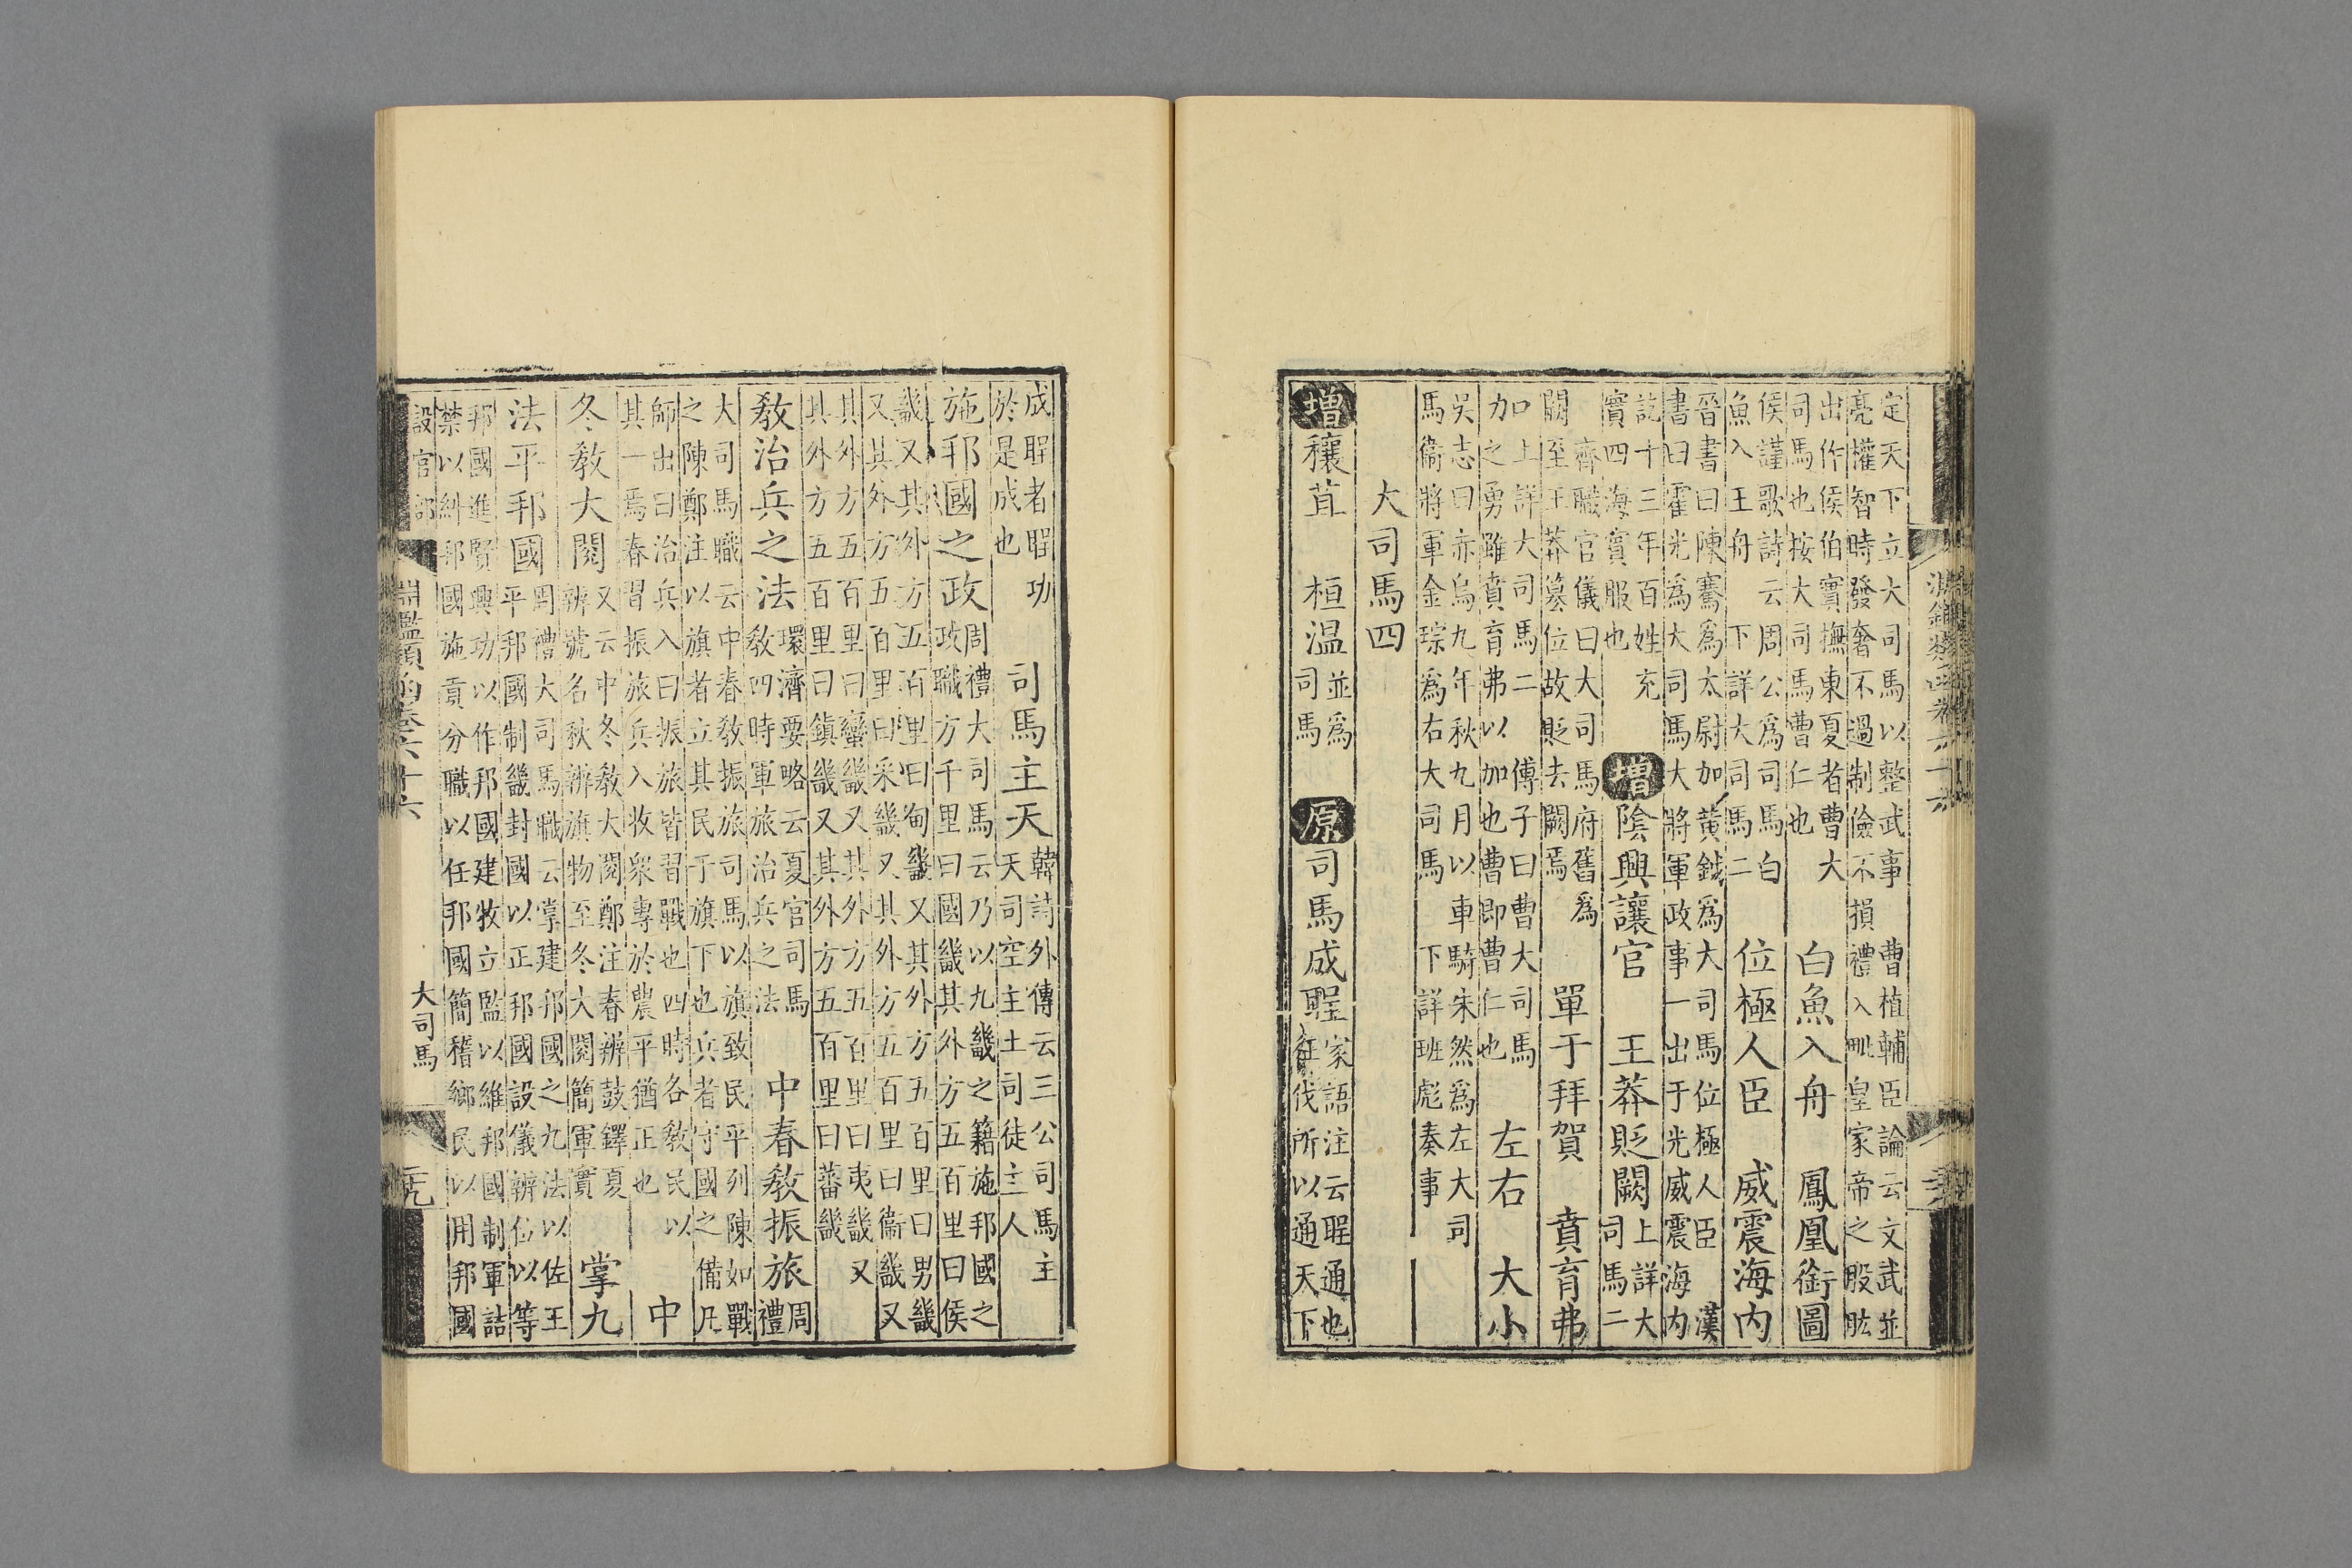 定天下立大司馬以整武事 曹植輔臣論云文武並
亮權智時發奢不過制儉不損禮入毗皇家帝之股肱
出作侯伯實撫東夏者曹大
司馬也按大司馬曹仁也
白魚入舟 鳳凰銜圖
侯謹歌詩云周公爲司馬白
魚入王舟 下詳大司馬二
位極人臣 威震海内
晉書曰陳騫爲太尉加黃鉞爲大司馬位極人臣 漢
書曰霍光爲大司馬大將軍政事一出于光威震海内
說十三年百姓充
實四海賓服也
增 陰興讓官 王莽貶闕
上詳大
司馬二
齊職官儀曰大司馬府舊爲
闕至王莽墓位故貶去闕焉
單于拜賀 賁育弗
口上詳大司馬二 傅子曰曹大司馬
加之勇雖賁育弗以加也曹即曹仁也
左右 大小
吳志曰赤烏九年秋九月以車騎朱然爲左大司
馬衞將軍金琮爲右大司馬 下詳班彪奏事
大司馬四
增 穰苴 桓温
並爲
司馬
原 司馬成聖
家語注云聖通也
征伐所以通天下
成聖者聖功
於是成也
司馬主天
韓詩外傳云三公司馬主
天司空主土司徒主人
施邦國之政
周禮大司馬云乃以九畿之籍施邦國之
政職方千里曰國畿其外方五百里曰侯
畿又其外方五百里曰甸畿又其外方五百里曰男畿
又其外方五百里曰采畿又其外方五百里曰衞畿又
其外方五百里曰蠻畿又其外方五百里曰夷畿又
其外方五百里曰鎮畿又其外方五百里曰蕃畿
教治兵之法
環濟要略云夏官司馬
教四時軍旅治兵之法
中春教振旅
周
禮
大司馬職云中春教振旅司馬以旗致民平列陳如戰
之陳鄭注以旗者立其民于旗下也兵者守國之備凡
師出曰治兵入曰振旅皆習戰也四時各教民以
其一焉春習振旅兵入收衆專於農平猶正也
中
冬教大閱
又云中冬教大閱鄭注春辨鼓鐸夏
辨號名秋辨旗物至冬大閱簡軍實
掌九
法平邦國
周禮大司馬職云掌建邦國之九法以佐王
平邦國制畿封國以正邦國設儀辨位以等
邦國進賢興功以作邦國建牧立監以維邦國制軍詰
禁以糾邦國施貢分職以任邦國簡稽鄉民以用邦國
淵鑑類函卷六十六 大司馬